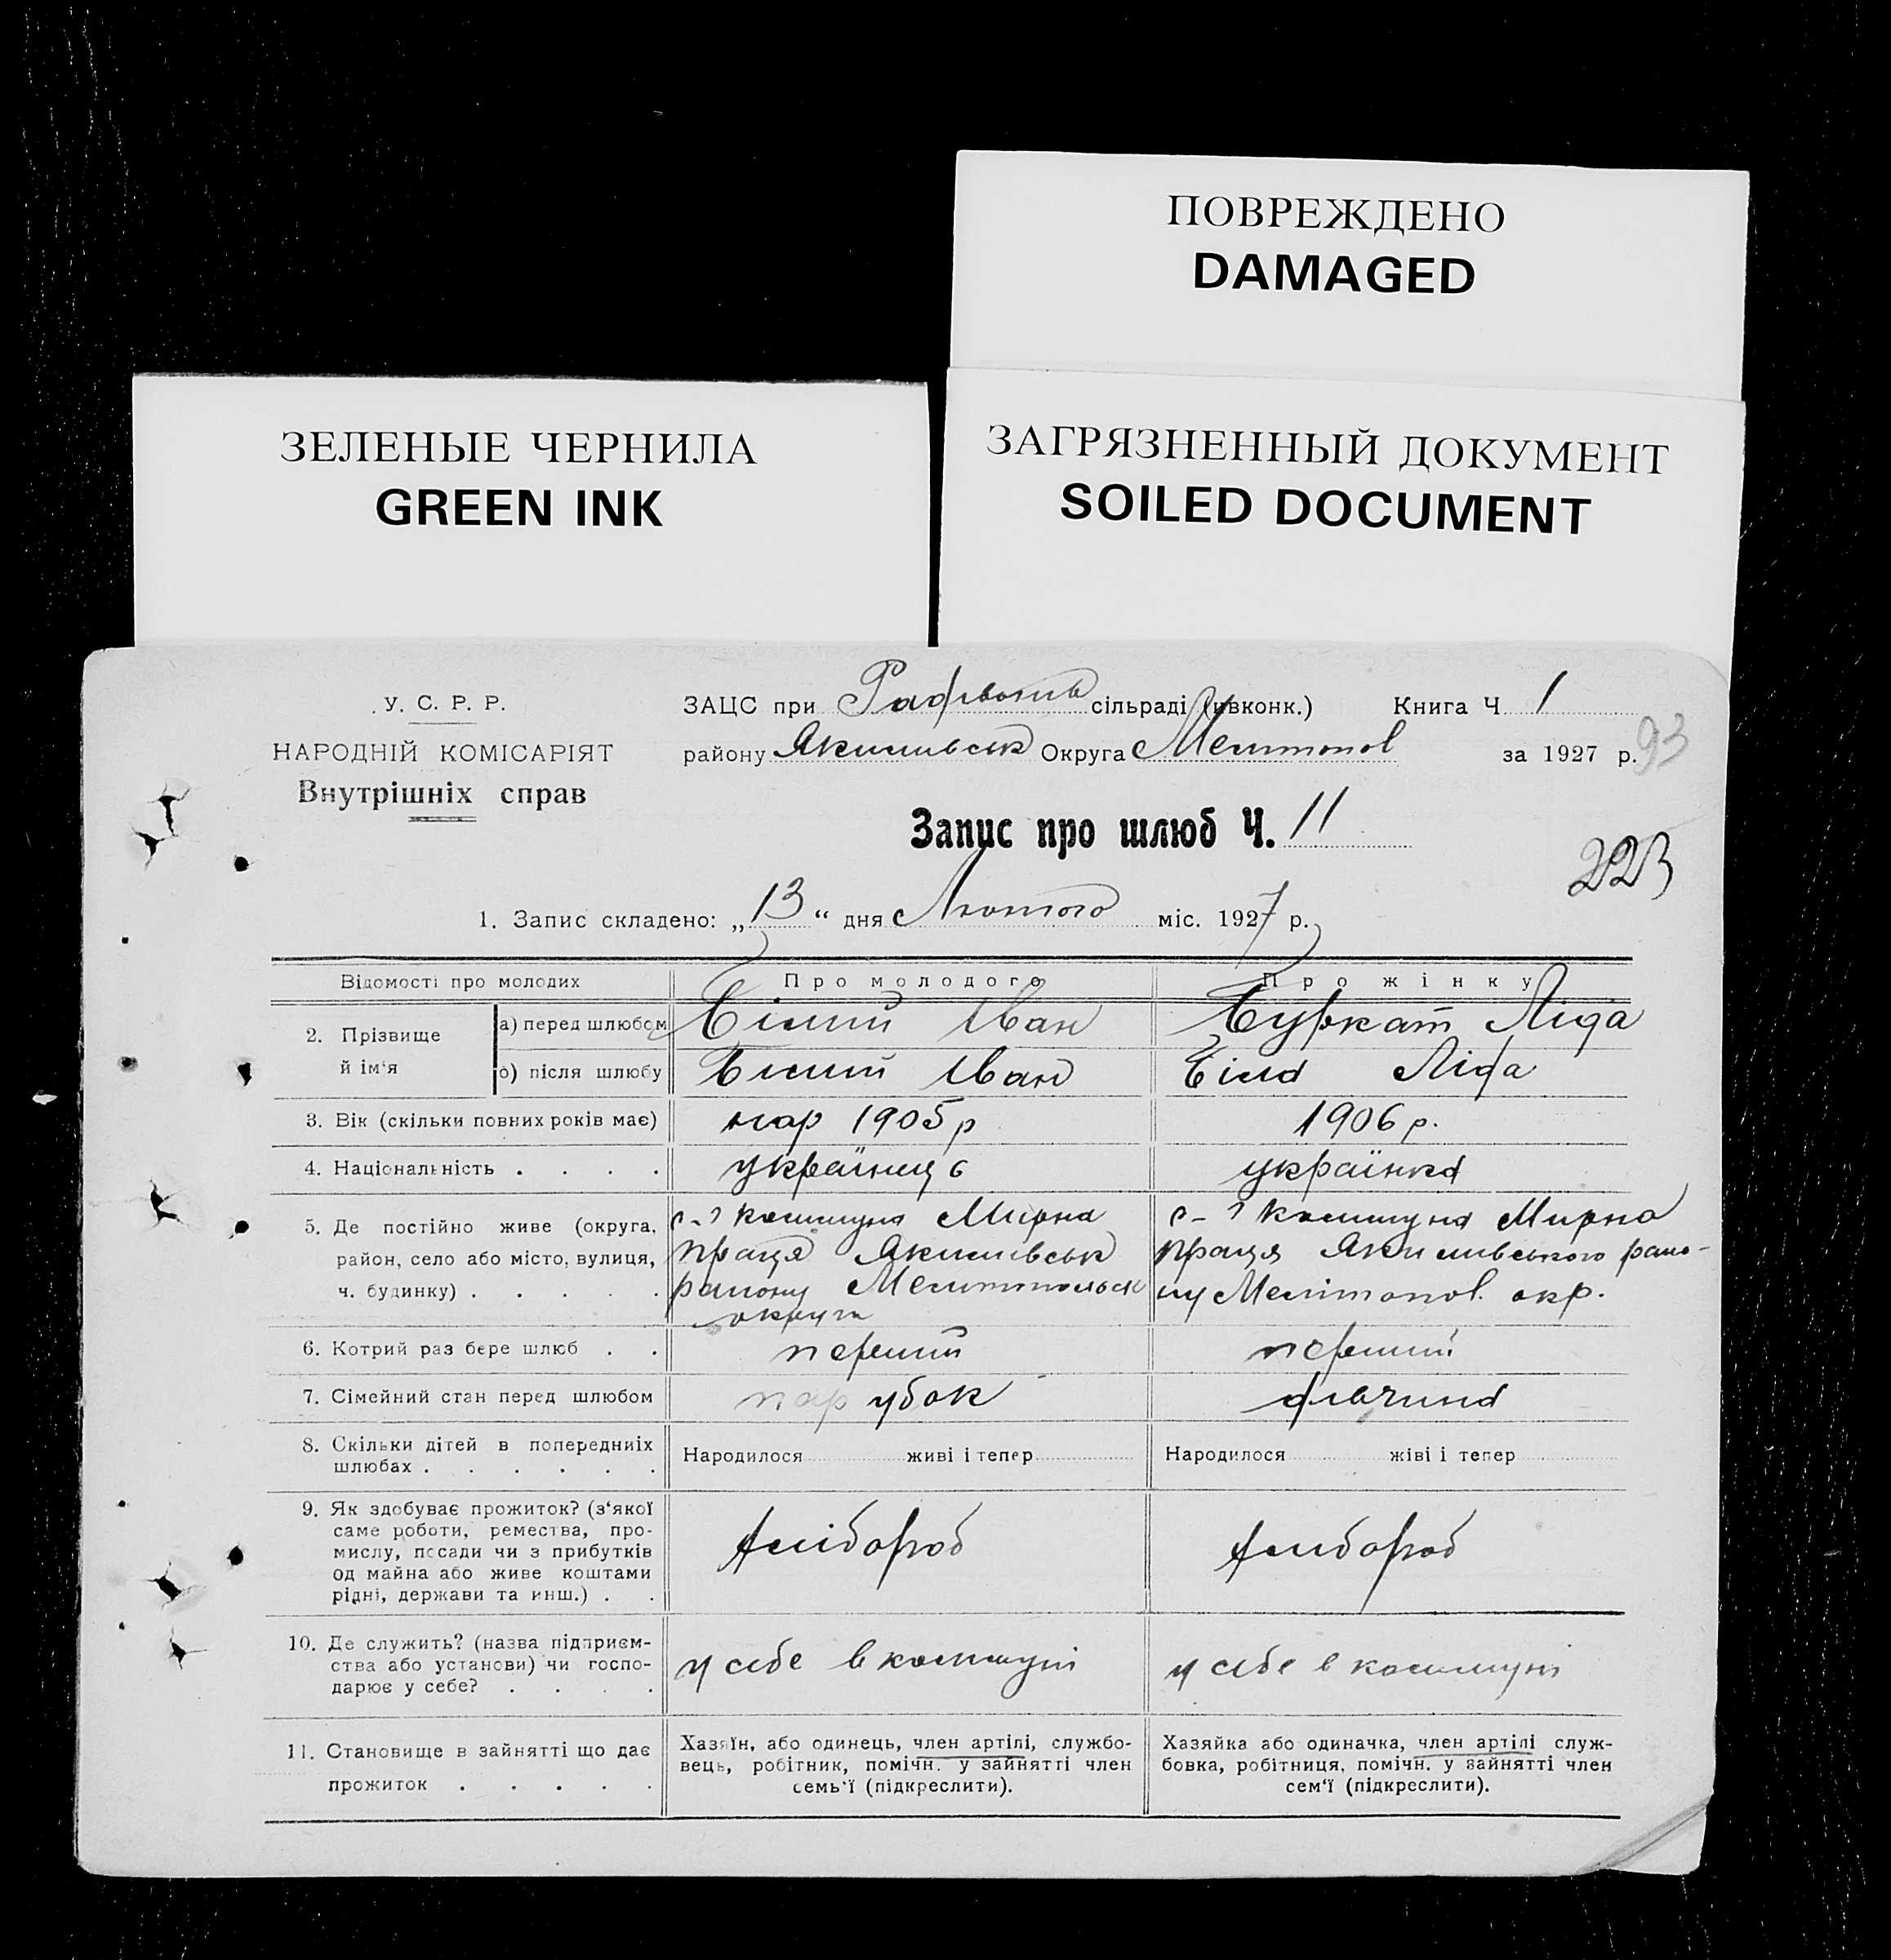 ПОВРЕЖДЕНО
DAMAGED
ЗЕЛЕНЫЕ ЧЕРНИЛА
GREEN INK
ЗАГРЯЗНЕННЫЙ ДОКУМЕНТ
SOILED DOCUMENT
У. С. Р. Р.
НАРОДНІЙ КОМІСАРІЯТ
Внутрішніх справ
ЗАЦС при сільраді (ивконк.) Книга Ч 1
району Якимивськ Округа Мелитопол за 1927 р. 93
Запис про шлюб Ч. 11
223
1. Запис складено: „13“ дня Лютого міс. 1927 р.
Відомості про молодих Про молодого Про жінку
2. Прізвище й ім‘я
а) перед шлюбом Білий Іван Буркат Ліда
б) після шлюбу Білий Іван Біла Ліда
3. Вік (скільки повних років має) нар 1905 р 1906 р.
4. Національність . . . . українець українка
5. Де постійно живе (округа, район, село або місто, вулиця, ч. будинку) . . . . .
с-г комуна Мирна
праця Якимивськ
району Мелитопольск
округи
с-г комуна Мирна
праця Якимивського райо-
ну Мелітопол. окр.
6. Котрий раз бере шлюб . . перший перший
7. Сімейний стан перед шлюбом парубок дівчина
8. Скільки дітей в попередниіх
шлюбах . . . . . .
Народилося живі і тепер Народилося жіві і тепер
9. Як здобуває прожиток? (з‘якої
саме роботи, ремества, про-
мислу, посади чи з прибутків
од майна або живе коштами
рідні, держави та инш.) . .
хлібороб хлибороб
10. Де служить? (назва підприєм-
ства або установи) чи госпо-
дарює у себе? . . . .
у себе в комуні у себе в комуні
11. Становище в зайнятті що дає
прожиток . . . . .
Хазяїн, або одинець, член артілі, службо-
вець, робітник, помічн. у зайнятті член
семь‘ї (підкреслити).
Хазяйка або одиначка, член артілі служ-
бовка, робітниця, помічн. у зайнятті член
сем‘ї (підкреслити).